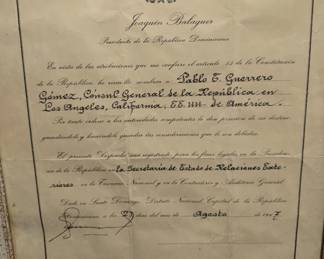 Joaquín Balaguer
Presidente de la República Dominicana
En vista de las atribuciones que me confiere el artículo 55 de la Constitución
de la República, he venido a nombrar a Pablo T. Guerrero
Gómez, Cónsul General de la República en
Los Angeles, California, EE. UU. de América.
Por tanto ordeno a las autoridades competentes le den posesión de su
y haciéndole guardar las consideraciones que le son debidas.
El presente Despacho será registrado, para los fines legales, en la
de la República en la Secretaría de Estado de Relaciones Exte-
riores en la Tesorería Nacional y en la Contraloría y Auditoría General.
Dado en Santo Domingo, Distrito Nacional, Capital de la República
Dominicana a los 29 días del mes de Agosto de 1967